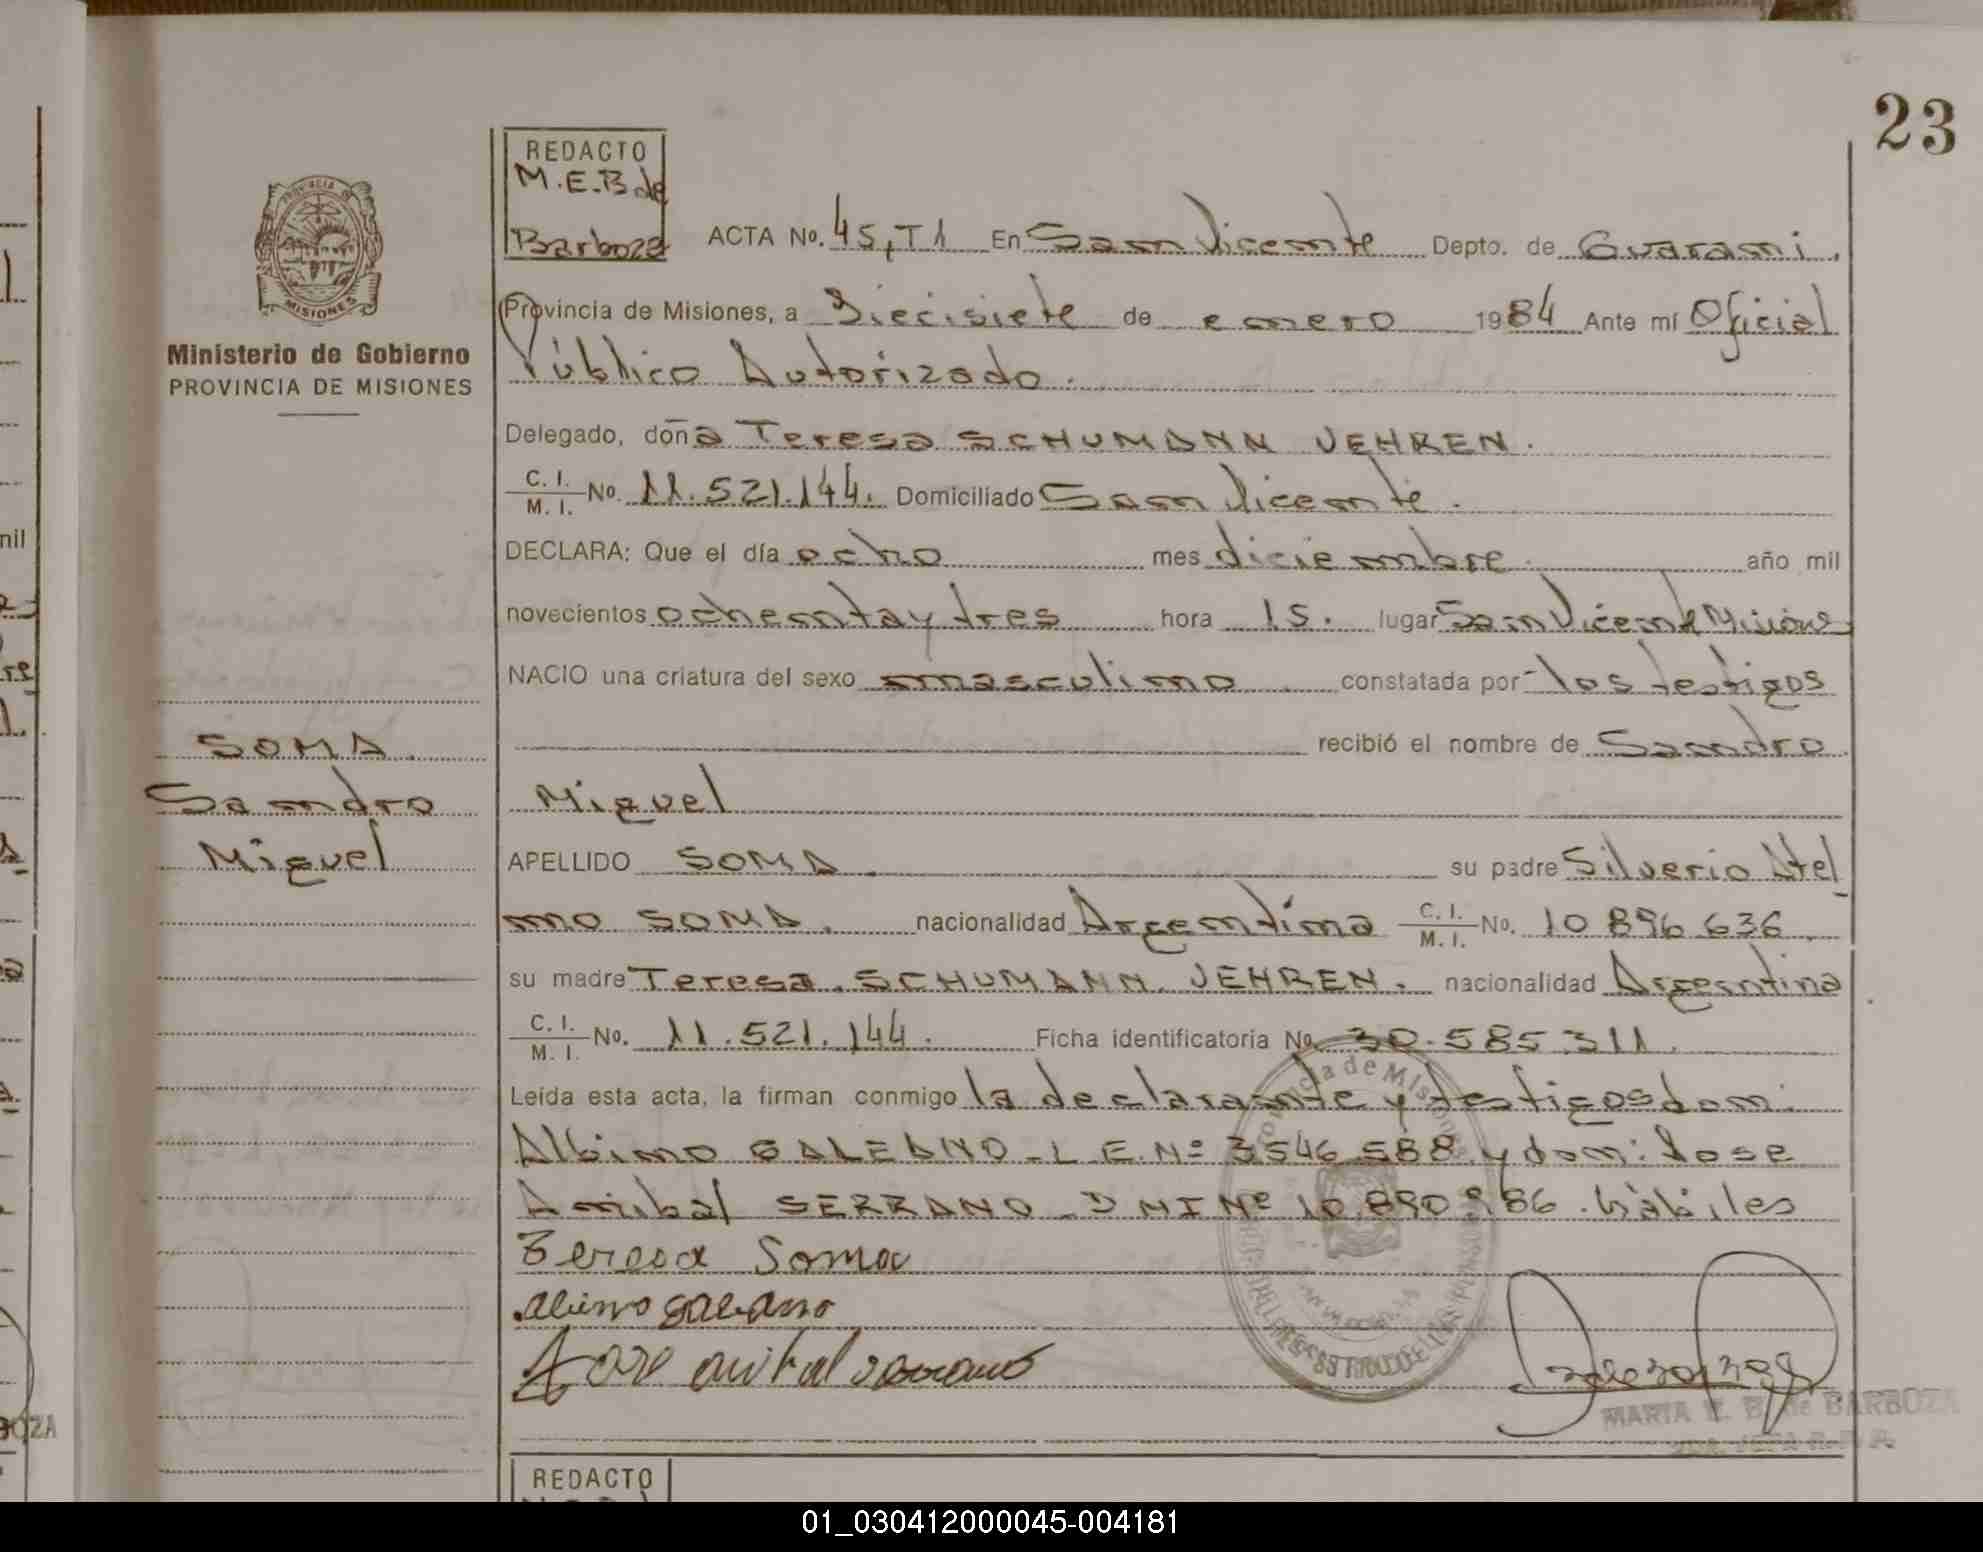 23
REDACTO
M.E.B de
Barboza
ACTA No. 45, T1 En San Vicente Depto. de Guarani.
Provincia de Misiones, a Diecisiete de enero 1984 Ante mí Oficial
Público Autorizado.
MISIONES
Ministerio de Gobierno
PROVINCIA DE MISIONES
Delegado, doña Teresa SCHUMANN VEHREN.
C. I. / M. I. No. 11.521.144. Domiciliado San Vicente.
DECLARA: Que el día ocho mes diciembre. año mil
novecientos ochenta y tres hora 15. lugar San Vicente Misiones
NACIO una criatura del sexo masculino constatada por los testigos
recibió el nombre de Sandro
Miguel
SOMA.
Sandro
Miguel
APELLIDO SOMA. su padre Silverio Atel
mo SOMA. nacionalidad Argentina C. I. / M. I. No. 10 896 636.
su madre Teresa SCHUMANN VEHREN. nacionalidad Argentina
C. I. / M. I. No. 11.521.144. Ficha identificatoria No. 30.585.311.
Leída esta acta, la firman conmigo la declarante y testigos don:
Albino GALEANO - L.E. Nº 3546 588 y don: Jose
Anibal SERRANO - D NI Nº 10 890 986. hábiles
Teresa Soma
Albino Galeano
Jose anibal serrano
Provincia de Misiones
MARIA E. B. de BARBOZA
REDACTO
nil
BOZA
01_030412000045-004181